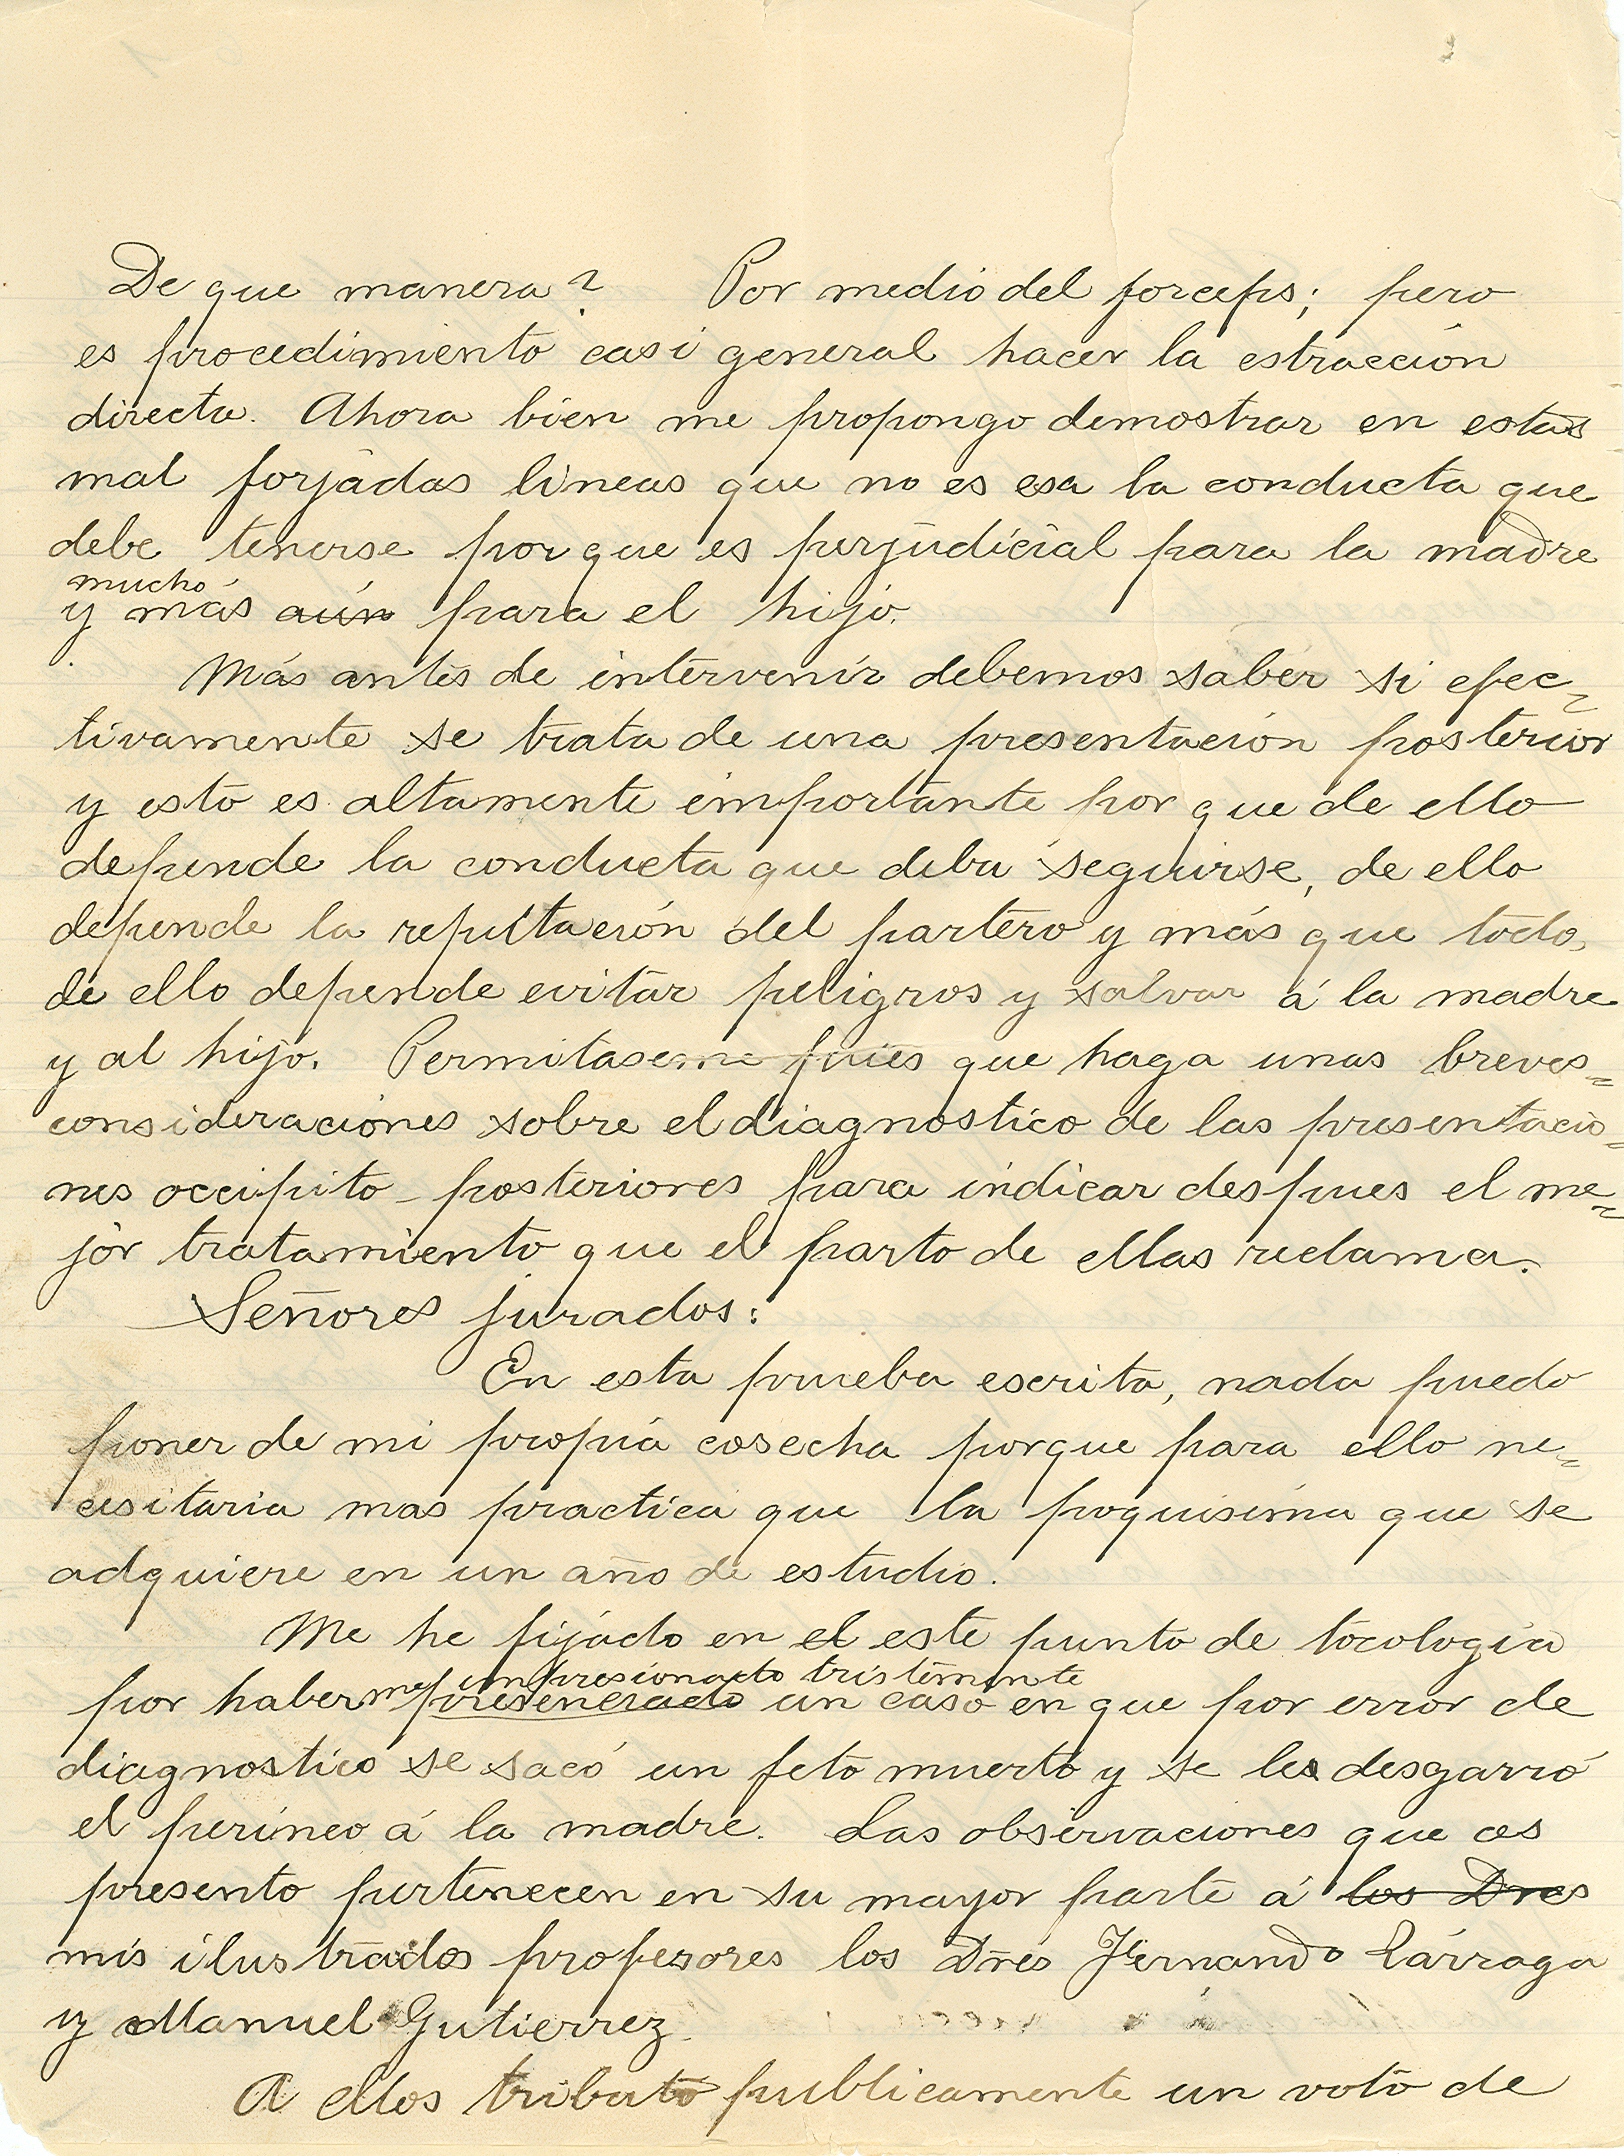 De que manera? Por medio del forceps; pero
es procedimiento casi general hacer la estracción
directa. Ahora bien me propongo demostrar en estas
mal forjadas lineas que no es esa la conducta que
debe tenerse por que es perjudicial para la madre
mucho
y más aún para el hijo.
Más antes de intervenir debemos saber si efec-
tivamente se trata de una presentación posterior
y esto es altamente importante por que de ello
depende la conducta que deba seguirse, de ello
depende la reputación del partero y más que todo,
de ello depende evitar peligros y salvar á la madre
y al hijo. Permitaseme pues que haga unas breves
consideraciones sobre el diagnostico de las presentacio-
nes occipito-posteriores para indicar despues el me-
jor tratamiento que el parto de ellas reclama.
Señores jurados:
En esta prueba escrita, nada puedo
poner de mi propia cosecha porque para ello ne-
cesitaria mas practica que la poquisima que se
adquiere en un año de estudio.
Me he fijado en el este punto de tocologia
impresionado tristemente
por haberme presenciado un caso en que por error de
diagnostico se sacó un feto muerto y se le desgarró
el perineo á la madre. Las observaciones que os
presento pertenecen en su mayor parte á los Dres
mis ilustrados profesores los Dres Fernando Zárraga
y Manuel Gutierrez.
A ellos tributo publicamente un voto de